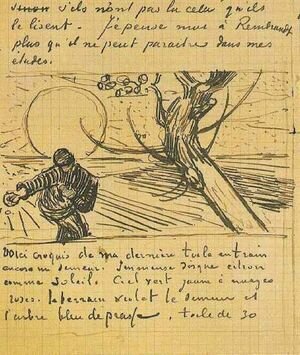 Sinon s'ils n'ont pas lu celui qu'ils
le lisent. – Je pense moi à Rembrandt
plus qu'il ne peut paraitre dans mes
etudes.
Voici croquis de ma derniere toile en train
encore un semeur. Immense disque citron
comme soleil. Ciel vert jaune à nuages
roses. le terrain violet le semeur et
l'arbre bleu de prusse. toile de 30